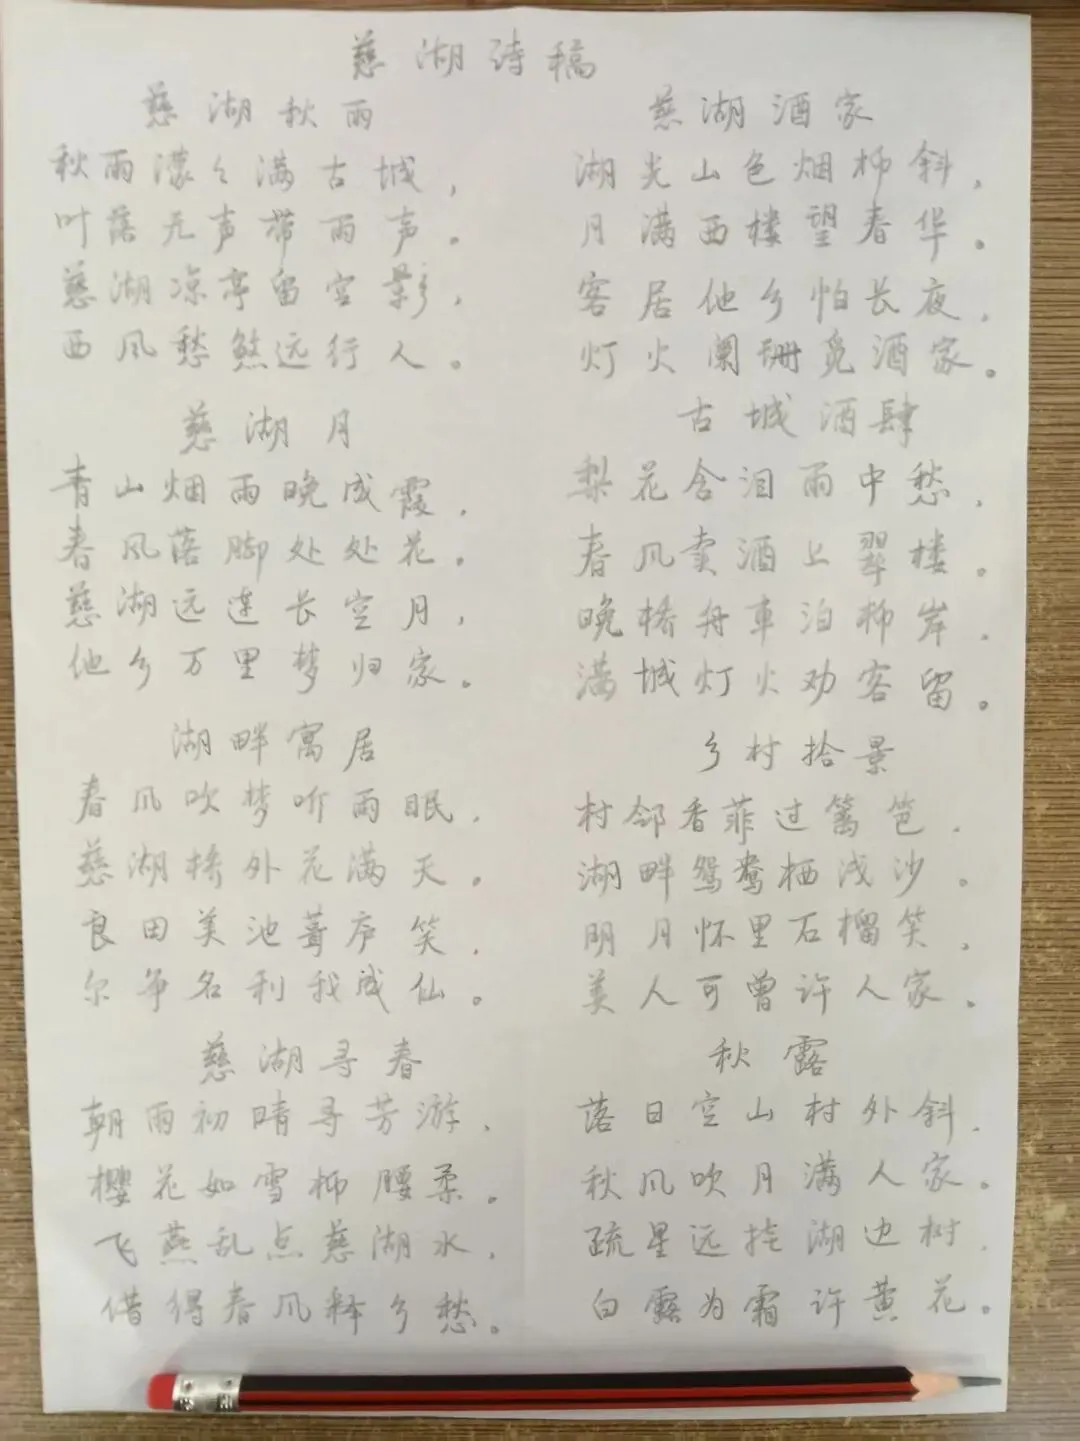 慈湖诗稿
慈湖秋雨
秋雨濛々满古城，
叶落无声带雨声。
慈湖凉亭留空影，
西风愁煞远行人。
慈湖月
青山烟雨晚成霞，
春风落脚处处花。
慈湖远连长空月，
他乡万里梦归家。
湖畔寓居
春风吹梦听雨眠，
慈湖桥外花满天。
良田美池葺庐笑，
尔争名利我成仙。
慈湖寻春
朝雨初晴寻芳游，
樱花如雪柳腰柔。
飞燕乱点慈湖水，
借得春风释乡愁。
慈湖酒家
湖光山色烟柳斜，
月满西楼望春华。
客居他乡怕长夜，
灯火阑珊觅酒家。
古城酒肆
梨花含泪雨中愁，
春风卖酒上翠楼。
晚桥舟车泊柳岸，
满城灯火劝客留。
乡村拾景
村邻香菲过篱笆，
湖畔鸳鸯栖浅沙。
明月怀里石榴笑，
美人可曾许人家。
秋露
落日空山村外斜，
秋风吹月满人家。
疏星远挂湖边树，
白露为霜许黄花。